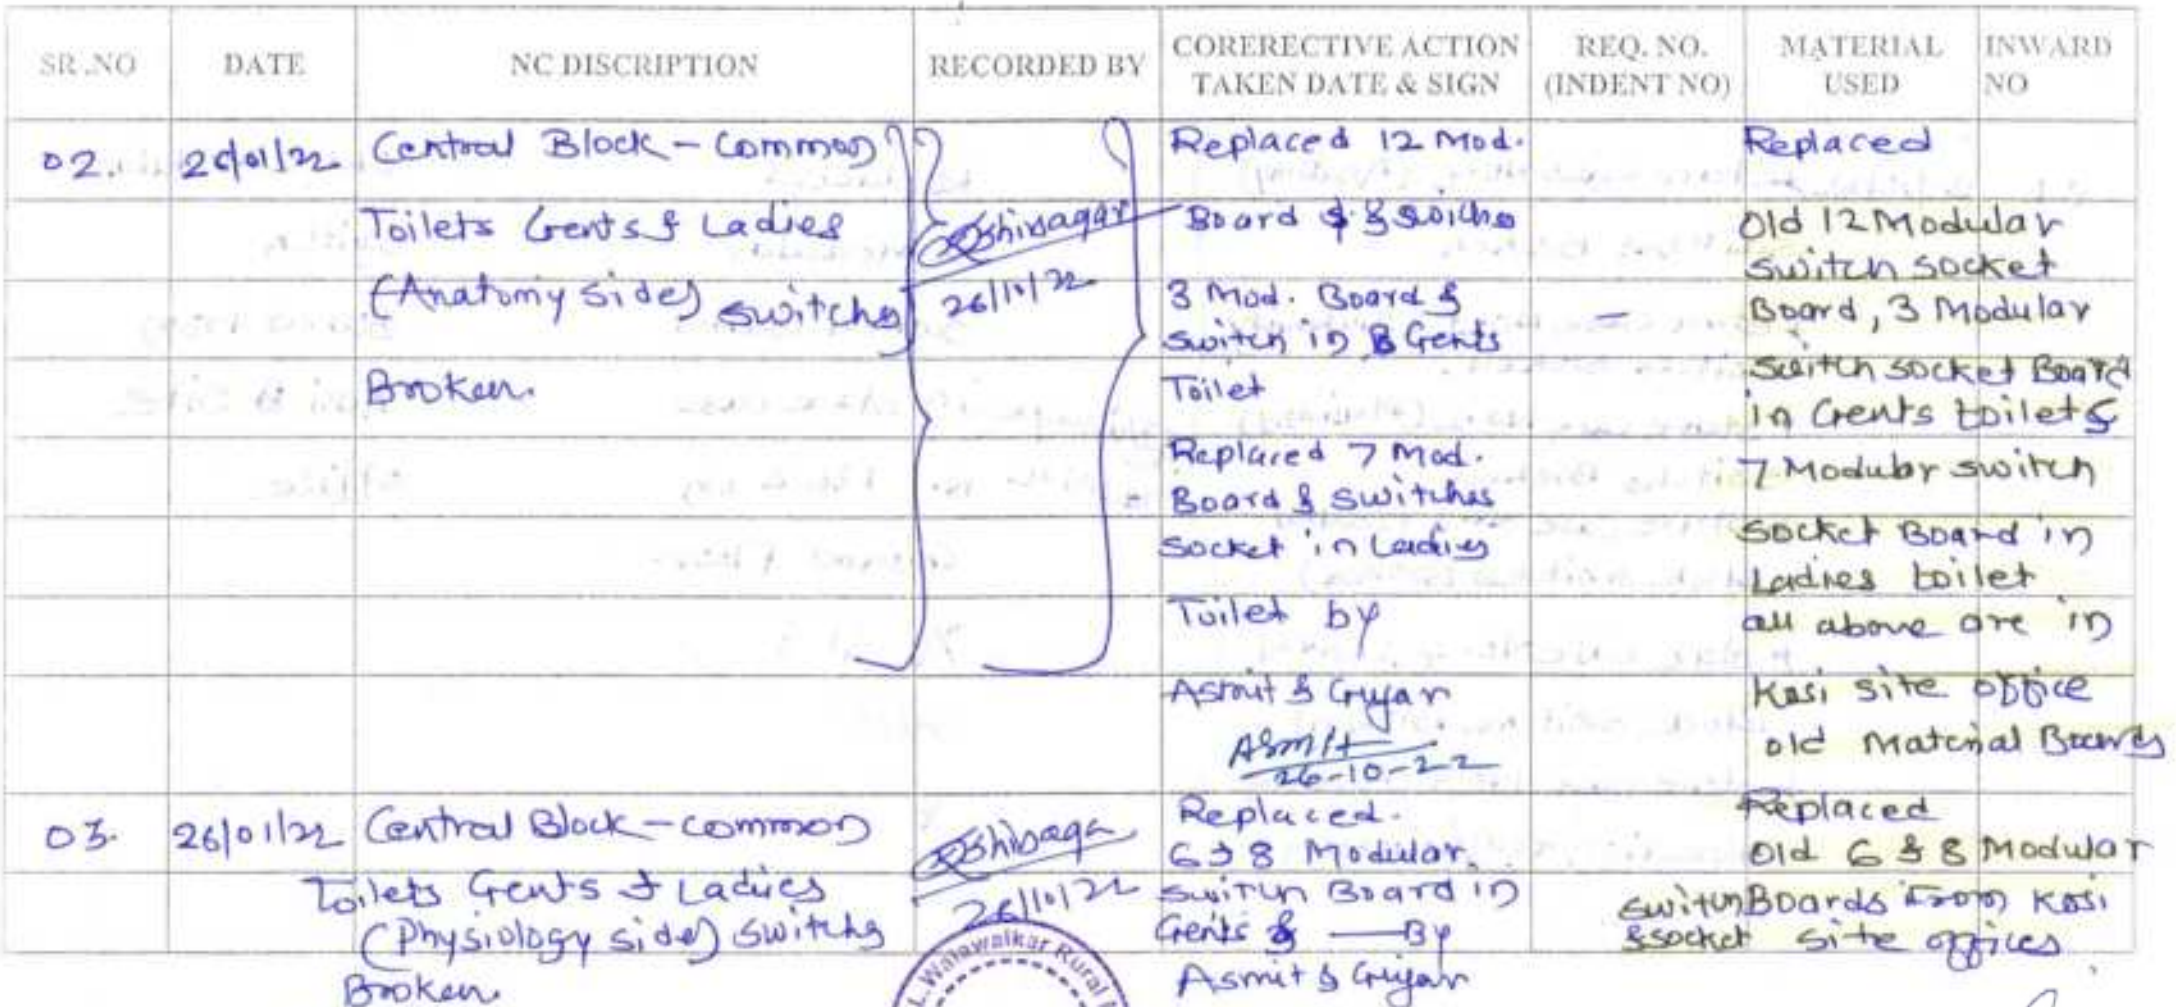 SR.NO DATE NC DISCRIPTION RECORDED BY CORERECTIVE ACTION TAKEN DATE & SIGN REQ. NO. (INDENT NO) MATERIAL USED INWARD NO
02. 26/01/22
Central Block - Common
Toilets Gents & Ladies
(Anatomy side) switches
Broken.
Kshirsagar
26/10/22
Replaced 12 Mod.
Board & switches
3 Mod. Board &
switch in Gents
Toilet
Replaced 7 Mod.
Board & switches
socket in Ladies
Toilet by
Asmit & Gujar
Asmit
26-10-22
-
Replaced
Old 12 Modular
switch socket
Board, 3 Modular
switch socket Board
in Gents toilet &
7 Modular switch
socket Board in
Ladies toilet
all above are in
Kasi site office
old Material Boards
03. 26/01/22
Central Block - common
Toilets Gents & Ladies
(Physiology side) switchs
Broken.
Kshirsaga
26/10/22
Replaced.
6 & 8 Modular.
switch Board in
Gents & — By
Asmit & Gujar
Replaced
Old 6 & 8 Modular
switch Boards from Kasi
& socket site offices
.L.Walawalkar Rural